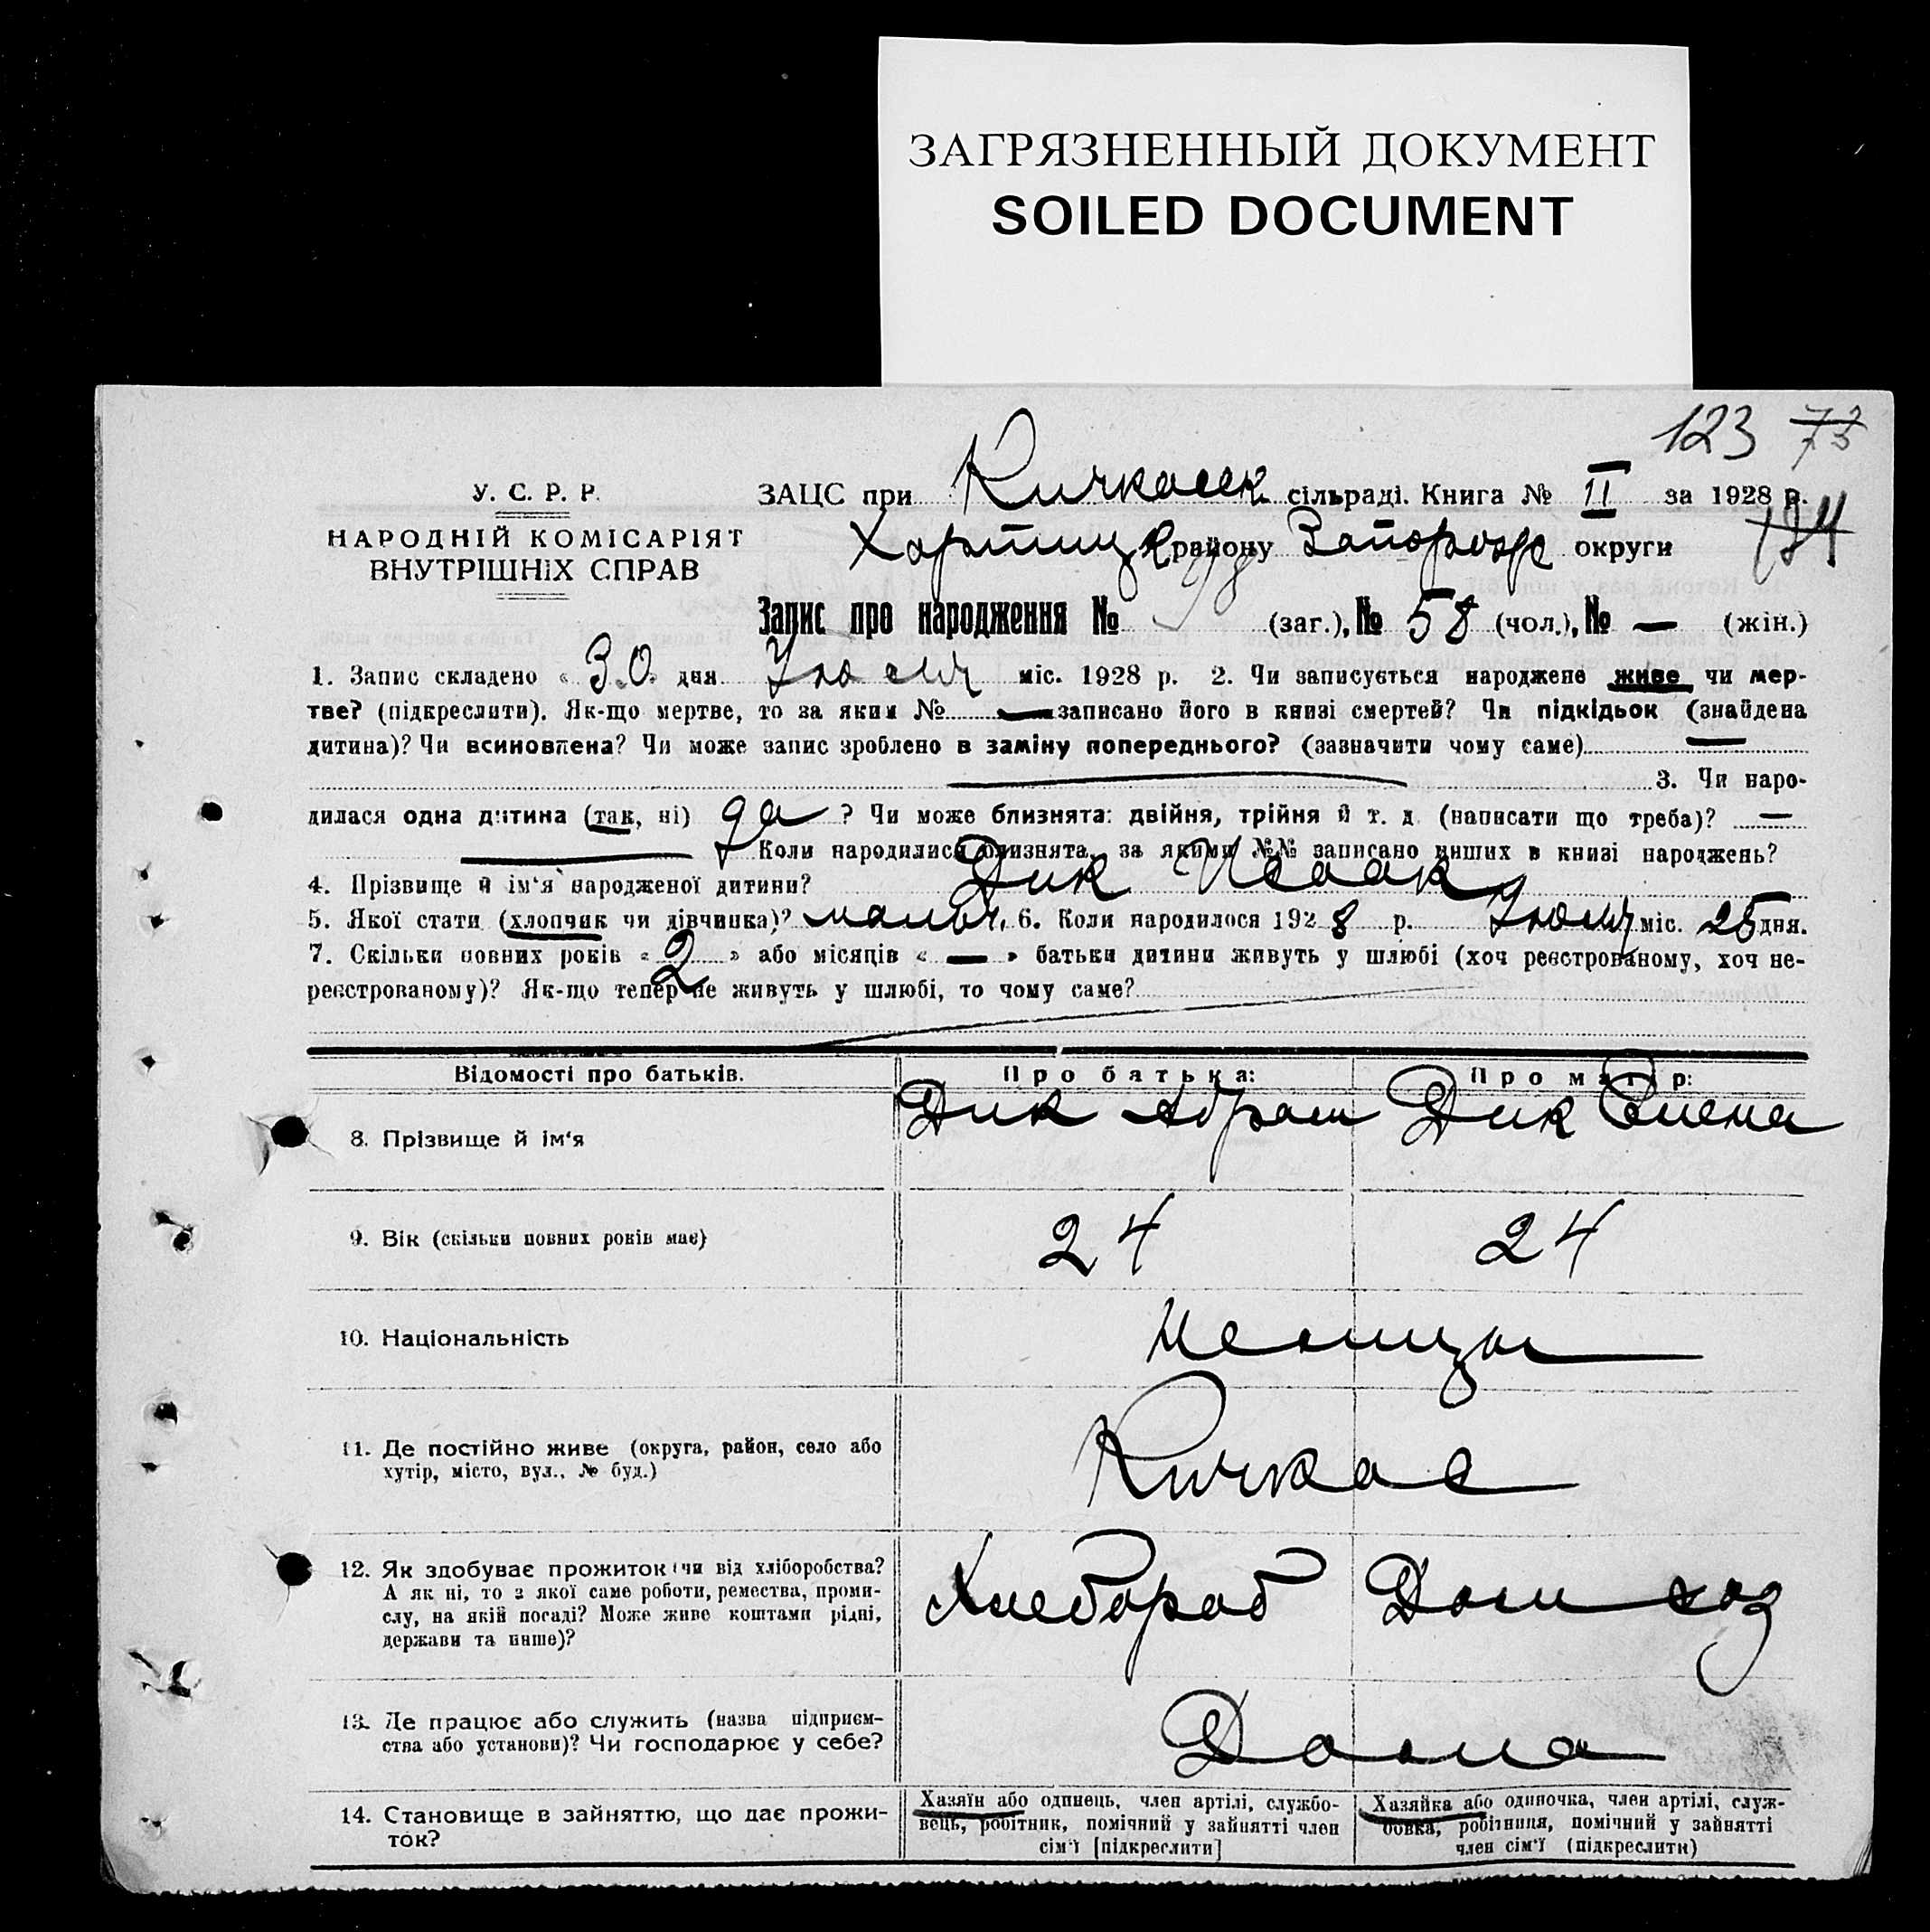 ЗАГРЯЗНЕННЫЙ ДОКУМЕНТ
SOILED DOCUMENT
123 73
У. С. Р. Р.
НАРОДНІЙ КОМІСАРІЯТ
ВНУТРІШНІХ СПРАВ
ЗАЦС при Кичкасск сільраді. Книга № II за 1928 р.
Хортицк району Запорож округи
Запис про народження № 98 (заг.), № 58 (чол.), № — (жін.)
1. Запис складено « 30 » дня міс. 1928 р. 2. Чи записується народжене живе чи мер-
тве? (підкреслити). Як-що мертве, то за яким № — записано його в книзі смертей? Чи підкідьок (знайдена
дитина)? Чи всиновлена? Чи може запис зроблено в заміну попереднього? (зазначити чому саме) —
3. Чи наро-
дилася одна дитина (так, ні) да ? Чи може близнята: двійня, трійня й т. д. (написати що треба)? —
Коли народилися близнята, за якими №№ записано инших в книзі народжень?
4. Прізвище й ім'я народженої дитини? Дик Исаак
5. Якої стати (хлопчик чи дівчинка)? мальч. 6. Коли народилося 1928 р. міс. 25 дня.
7. Скільки повних років « 2 » або місяців « — » батьки дитини живуть у шлюбі (хоч реєстрованому, хоч не-
реєстрованому)? Як-що тепер не живуть у шлюбі, то чому саме?
Відомості про батьків. Про батька: Про матір:
8. Прізвище й ім'я Дик Абрам Дик Елена
9. Вік (скільки повних років має) 24 24
10. Національність Немцы
11. Де постійно живе (округа, район, село або
хутір, місто, вул., № буд.) Кичкас
12. Як здобуває прожиток (чи від хліборобства?
А як ні, то з якої саме роботи, ремества, проми-
слу, на якій посаді? Може живе коштами рідні,
держави та инше)? Хлебороб Дом хоз
13. Де працює або служить (назва підприєм-
ства або установи)? Чи господарює у себе? Дома
14. Становище в зайняттю, що дає прожи-
ток?
Хазяїн або одинець, член артілі, службо-
вець, робітник, помічний у зайнятті член
сім'ї [підкреслити]
Хазяйка або одиночка, член артілі, служ-
бовка, робітниця, помічний у зайнятті
член сім'ї (підкреслити)